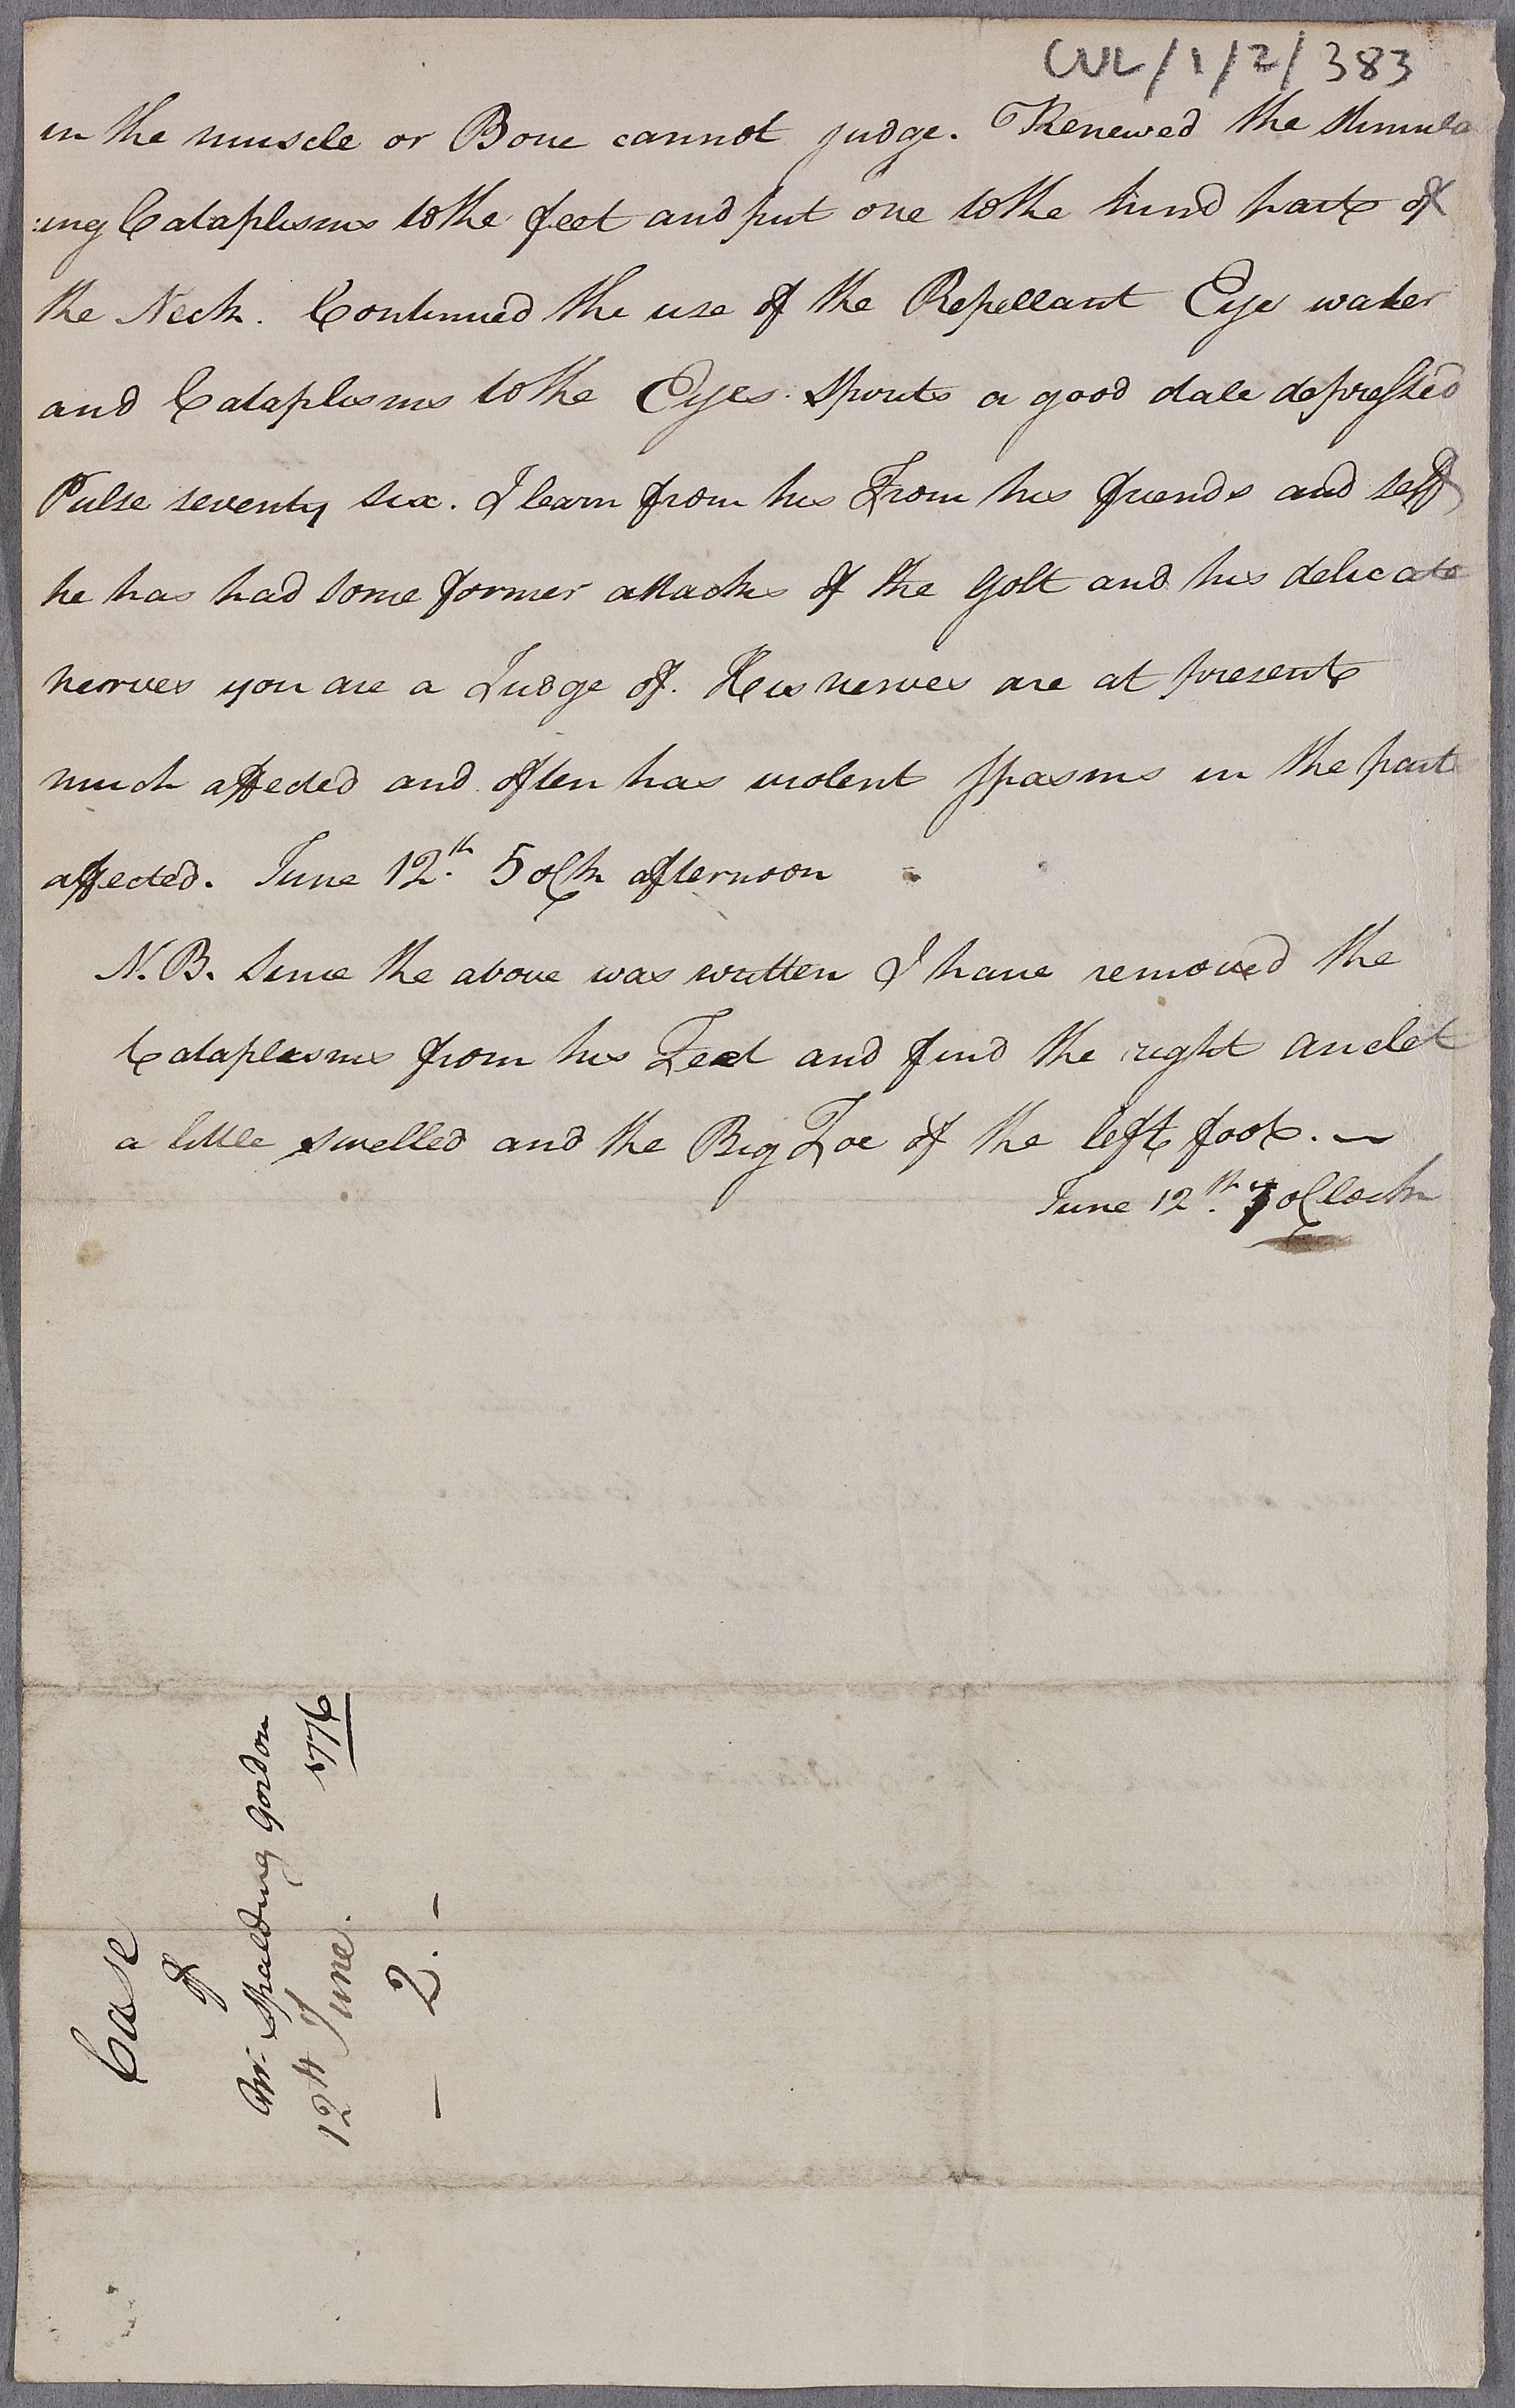 CUL/1/2/383
in the muscle or Bone cannot judge. Renewed the stimula
:ing Cataplasms to the feet and put one to the hind part of
the Neck. Continued the use of the Repellant Eye water
and Cataplasms to the Eyes. Spirits a good dale depressed
Pulse seventy six. I learn from his From his friends and self
he has had some former attacks of the Gott and his delicate
nerves you are a Judge of. His nerves are at present
much affected and often has violent spasms in the parts
affected. June 12th. 5 oCk afternoon
N.B. Since the above was written I have removed the
Cataplasms from his Feet and find the right anclet
a little swelled and the Big Toe of the left foot. —
June 12th. 7 oClock
Case
of
Mr. Spalding Gordon
12th June. 1776
— 2. —